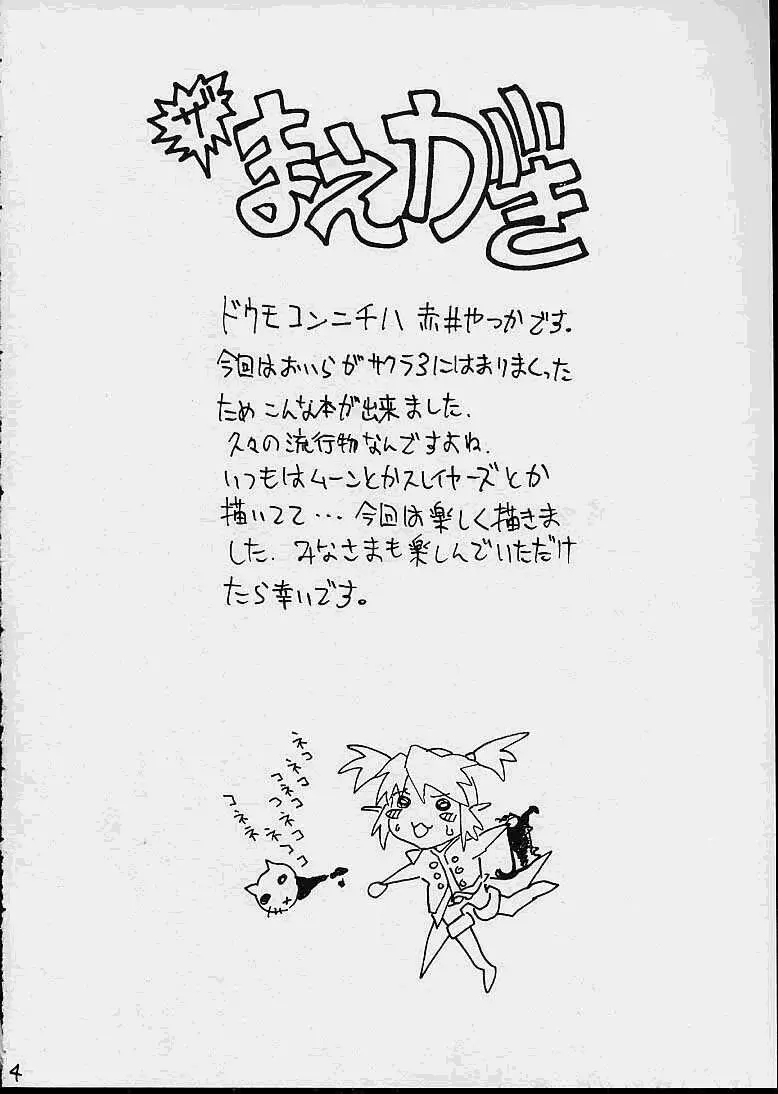 ザ
まえがき
ドウモコンニチハ 赤井やつかです。
今回はおいらがサクラ3にはまりまくった
ため こんな本が出来ました.
久々の流行物なんですよね.
いつもはムーンとかスレイヤーズとか
描いてて… 今回は楽しく描きま
した. みなさまも楽しんでいただけ
たら幸いです。
ネコ
ネコ
コネコ
コネネ
4